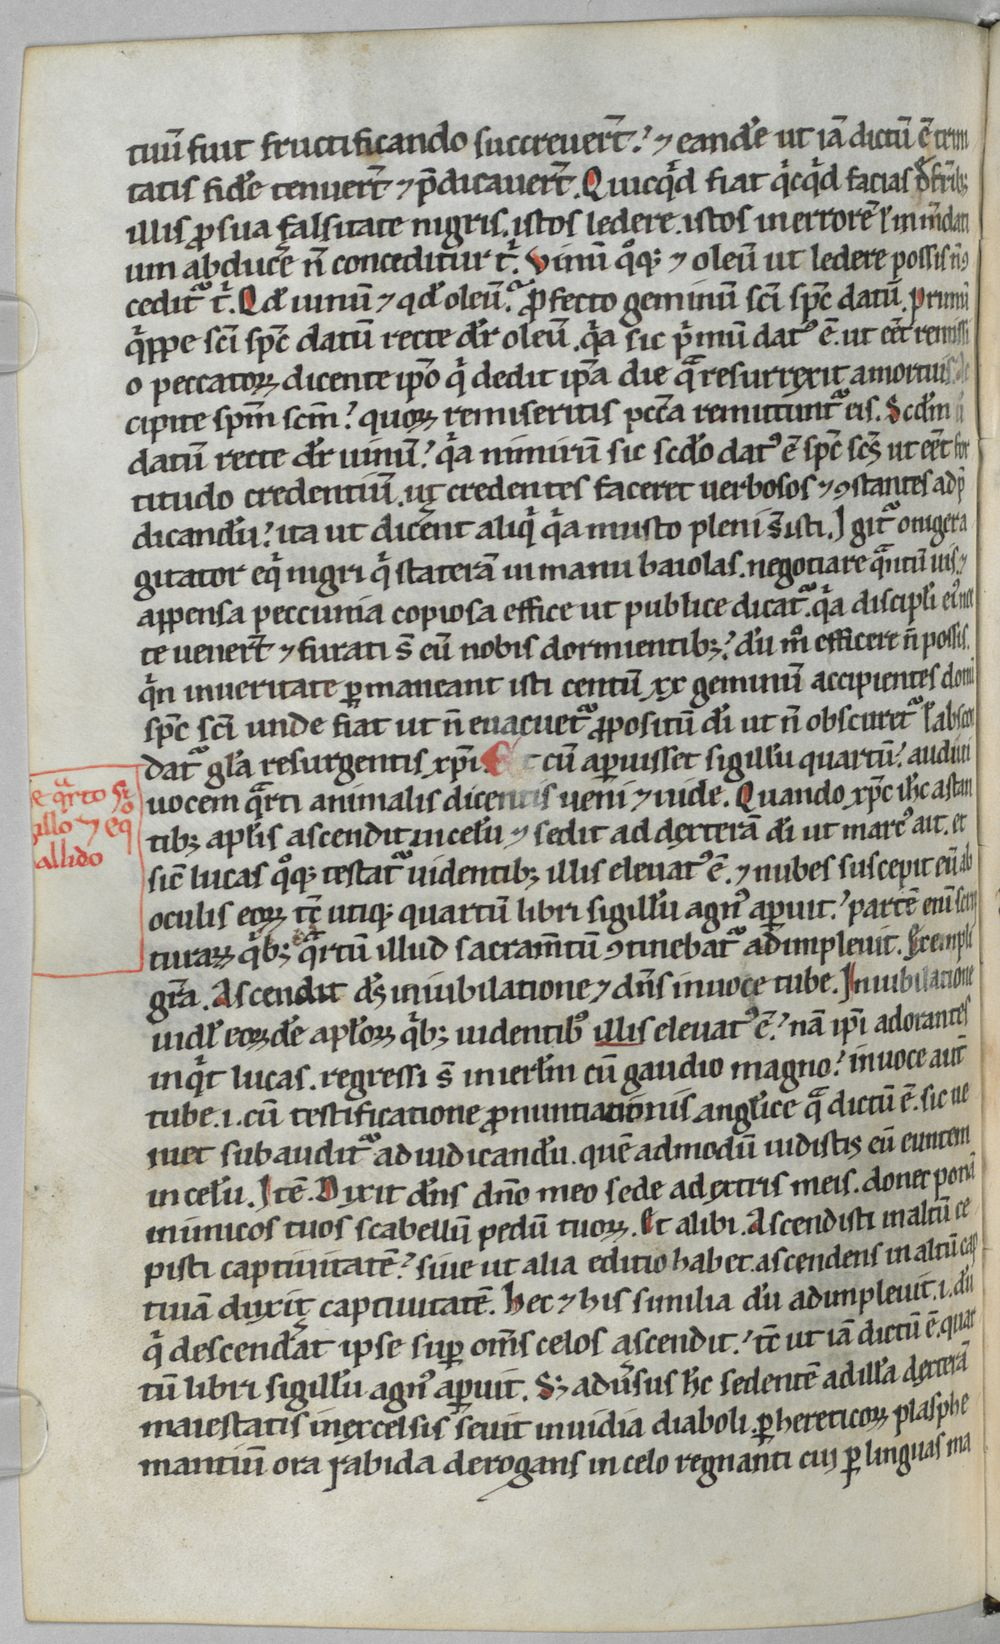 tiuū fuit fructificando succreuer̄t? ⁊ eandē ut iā dictū ē trini
tatis fidē tenuer̄t ⁊ p̄dicauer̄t. Quicqͥd fiat qͥcqͥd facias de frībꝫ
illis ꝓ sua falsitate nigris. istos ledere. istos in errorē
um abducē n̄ conceditur tͥ. Vinū qͦꝫ ⁊ oleū ut ledere possis n̄ ꝯ
ceditᷓ tͥ. Qd̄ uinū ⁊ qd̄ oleū? ꝓfecto geminū sc̄i sp̄c datū. Primū
qͥppe sc̄i sp̄c datū recte dr̄ oleū. qͥa sic pͥmū datꝰ ē. ut eēt remissi
o peccatoꝝ dicente ip̄o qͥ dedit ip̄a die qᷓ resurrexit a mortuis.
cipite sp̄m sc̄m? quoꝝ remiseritis pcc̄a remittuntᷓ eis. Scd̄m
datū recte dr̄ uinū? qͥa nimirū sic scd̄o datꝰ ē sp̄c sc̄s ut eēt for
titudo credentiū. ut credentes faceret uerbosos ⁊ ꝯstantes ad p̄
dicandū? ita ut dicerent aliqͥ qͥa musto pleni s̄ isti. Igitᷓ o nigera
gitator eqͥ nigri qͥ staterā in manu baiolas. negotiare qᷓntū uis. ⁊
appensa peccunia copiosa effice ut publice dicatᷓ. qͥa discipl̄i eiꝰ noc
te uener̄t ⁊ furati s̄ eū nobis dormientibꝫ? dū m̊ efficere n̄ possis.
qͥn in ueritate ꝑmaneant isti centū xx geminū accipientes donū
sp̄c sc̄i unde fiat ut n̄ euacuetᷓ ꝓpositū dī ut n̄ obscuretᷓ l̄ abscon
datᷓ gl̄a resurgentis xp̄i. Et cū aꝑuisset sigillū quartū? audiui
uocem qᷓrti animalis dicentis ueni ⁊ uide. Quando xp̄c ih̄c astan
tibꝫ apl̄is ascendit in celū ⁊ sedit ad dexterā dī ut marcꝰ ait. et
sic̄ lucas qͦꝫ testatᷓ uidentibꝫ illis eleuatꝰ ē. ⁊ nubes suscepit eū ab
oculis eoꝝ tc̄ utiqꝫ quartū libri sigillū agnꝰ aꝑuit? partē enī scrip
turaꝝ qͥbꝫ qᷓrtū illud sacram̄tū ꝯtinebatᷓ adimpleuit. Exempli
gr̄a. Ascendit ds̄ in iubilatione ⁊ dn̄s in uoce tube. In iubilatione
uidl̄ eoꝝdē apl̄oꝝ qͥbꝫ uidentibꝰ illis eleuatꝰ ē? nā ip̄i adorantes
inqͥt lucas. regressi s̄ in ierl̄m cū gaudio magno? in uoce aut̄
tube .i. cū testificatione ꝓnuntiationis anglice qᷓ dictū ē. sic ue
niet subauditᷓ ad iudicandū. quē admodū uidistis eū euntem
in celū. Itē. Dixit dn̄s dn̄o meo sede a dextris meis. donec ponā
inimicos tuos scabellū pedū tuoꝝ. Et alibi. Ascendisti in altū ce
pisti captiuitatē? siue ut alia editio habet. ascendens in altū cap
tiuā duxit captiuitatē. Hec ⁊ his similia dū adimpleuit .i. dū
qͥ descenderat ipse suꝑ om̄s celos ascendit? tc̄ ut iā dictū ē. quar
tū libri sigillū agnꝰ aꝑuit. Sꝫ aduersus hc̄ sedentē ad illā dexterā
maiestatis in excelsis seuit inuidia diaboli. ꝑ hereticoꝝ plasphe
mantiū ora rabida derogans in celo regnanti cui ꝑ linguas ma
e qᷓrto si
illo ⁊ eqͦ
allido